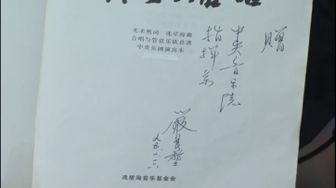 光未然词 冼星海曲
合唱与管弦乐队总谱
中央乐团演出本
赠
中央音乐院
指挥系
嚴良堃
冼星海音乐基金会